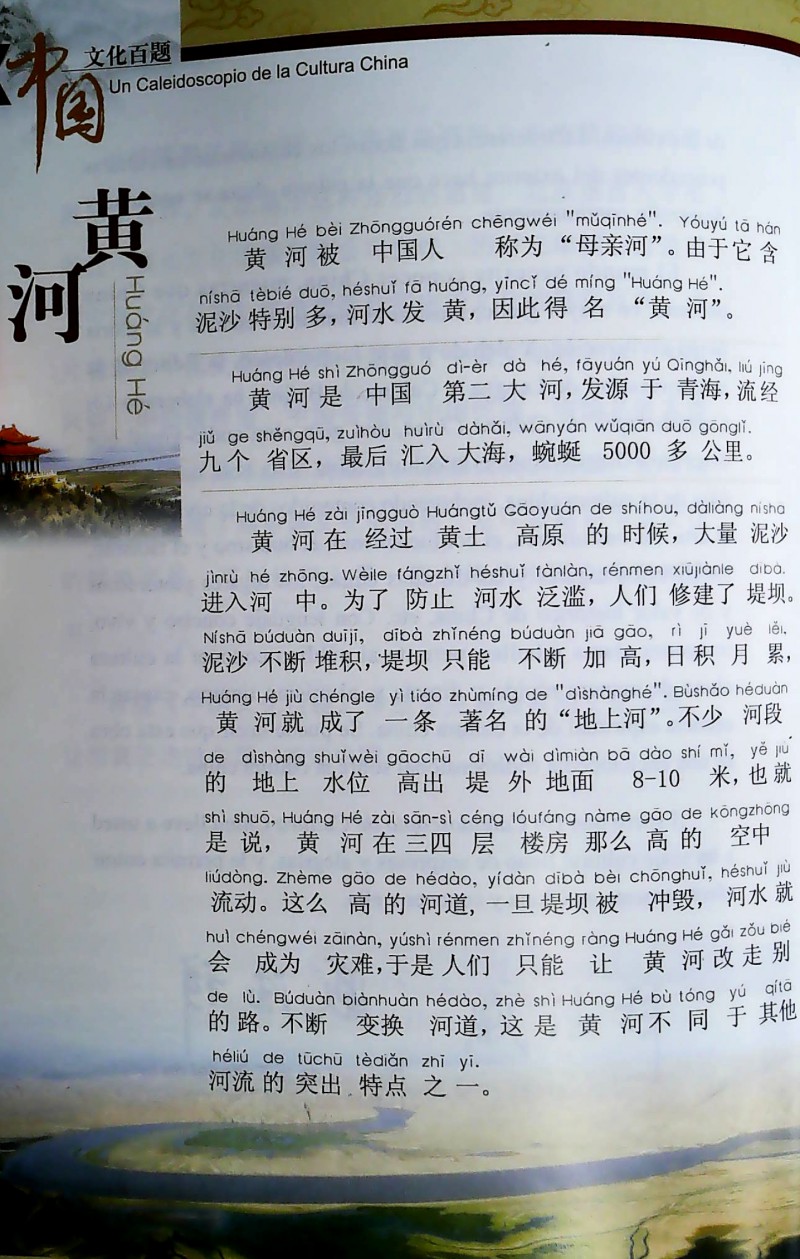 中国
文化百题
Un Caleidoscopio de la Cultura China
黄河
Huáng Hé
Huáng Hé bèi Zhōngguórén chēngwéi "mǔqīnhé". Yóuyú tā hán
黄河被中国人称为“母亲河”。由于它含
níshā tèbié duō, héshuǐ fā huáng, yīncǐ dé míng "Huáng Hé".
泥沙特别多，河水发黄，因此得名“黄河”。
Huáng Hé shì Zhōngguó dì-èr dà hé, fāyuán yú Qīnghǎi, liú jīng
黄河是中国第二大河，发源于青海，流经
jiǔ ge shěngqū, zuìhòu huìrù dàhǎi, wānyán wǔqiān duō gōnglǐ.
九个省区，最后汇入大海，蜿蜒 5000 多公里。
Huáng Hé zài jīngguò Huángtǔ Gāoyuán de shíhou, dàliàng níshā
黄河在经过黄土高原的时候，大量泥沙
jìnrù hé zhōng. Wèile fángzhǐ héshuǐ fànlàn, rénmen xiūjiànle dībà.
进入河中。为了防止河水泛滥，人们修建了堤坝。
Níshā búduàn duījī, dībà zhǐnéng búduàn jiā gāo, rì jī yuè lěi,
泥沙不断堆积，堤坝只能不断加高，日积月累，
Huáng Hé jiù chéngle yì tiáo zhùmíng de "dìshànghé". Bùshǎo héduàn
黄河就成了一条著名的“地上河”。不少河段
de dìshàng shuǐwèi gāochū dī wài dìmiàn bā dào shí mǐ, yě jiù
的地上水位高出堤外地面 8-10 米，也就
shì shuō, Huáng Hé zài sān-sì céng lóufáng nàme gāo de kōngzhōng
是说，黄河在三四层楼房那么高的空中
liúdòng. Zhème gāo de hédào, yídàn dībà bèi chōnghuǐ, héshuǐ jiù
流动。这么高的河道，一旦堤坝被冲毁，河水就
huì chéngwéi zāinàn, yúshì rénmen zhǐnéng ràng Huáng Hé gǎi zǒu bié
会成为灾难，于是人们只能让黄河改走别
de lù. Búduàn biànhuàn hédào, zhè shì Huáng Hé bù tóng yú qítā
的路。不断变换河道，这是黄河不同于其他
héliú de tūchū tèdiǎn zhī yī.
河流的突出特点之一。